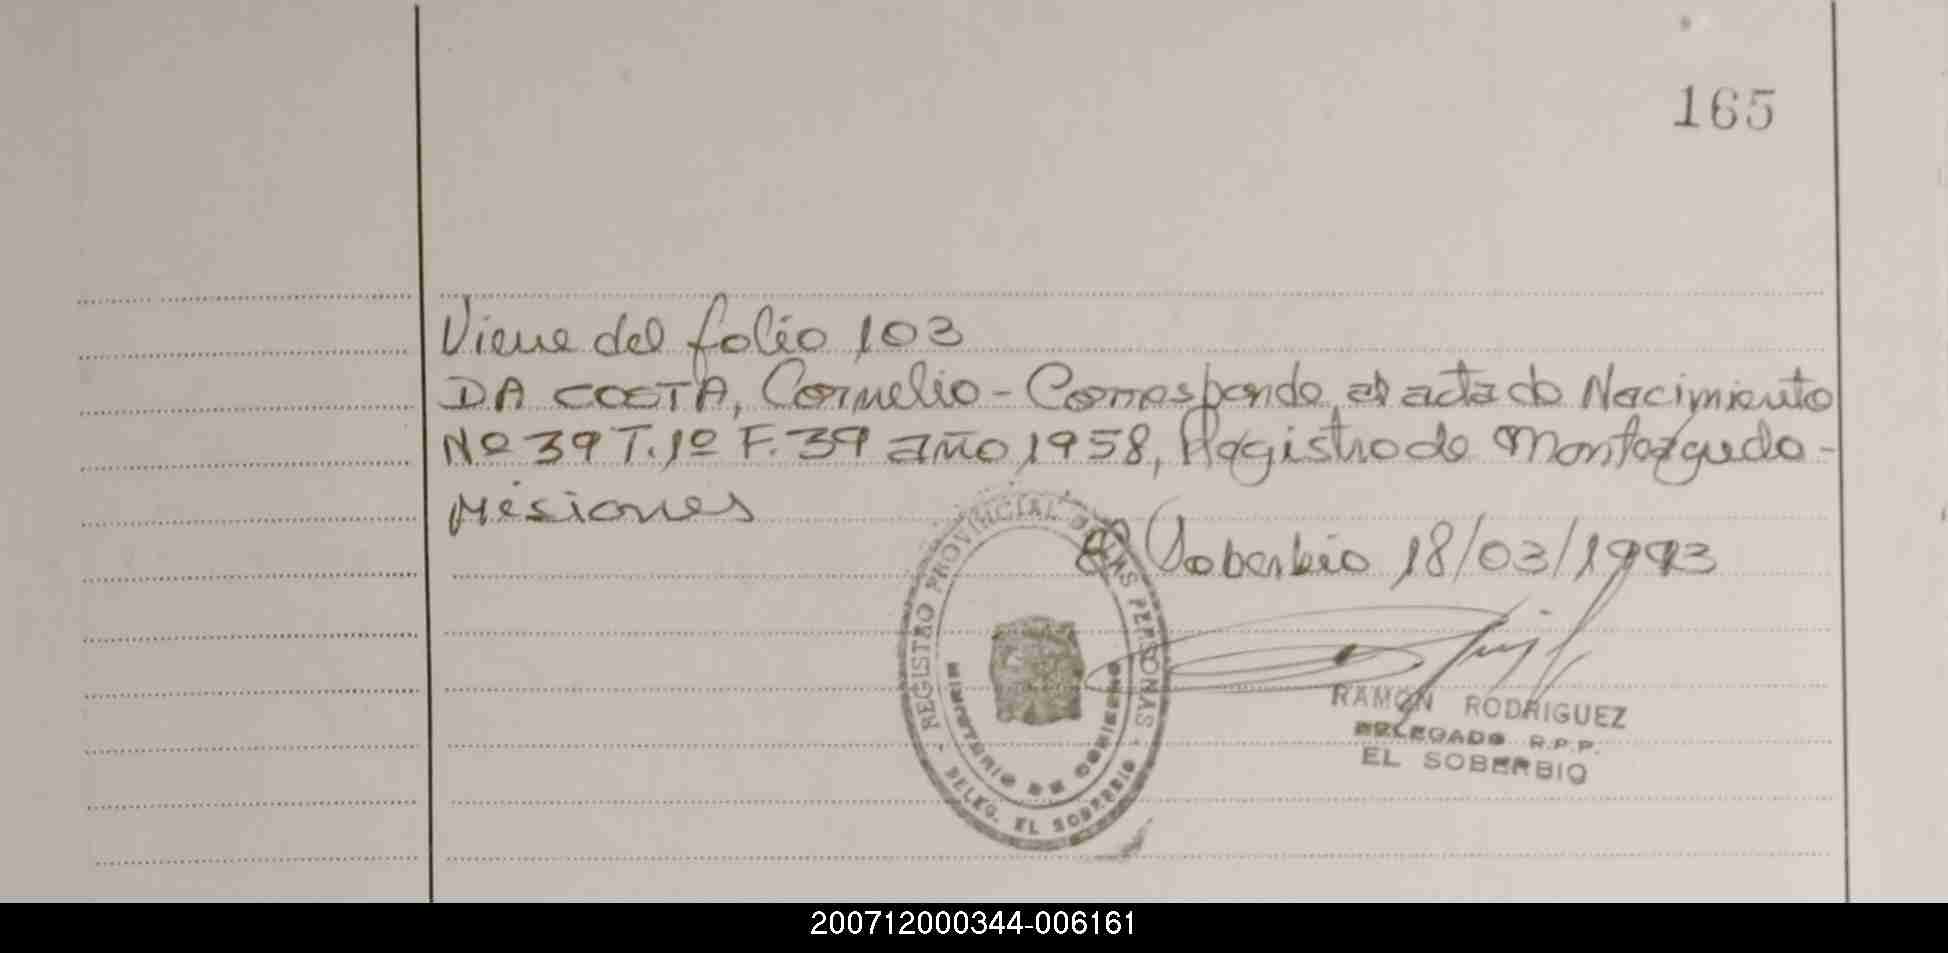 165
Viene del folio 103
DA COSTA, Cornelio - Corresponde al acta de Nacimiento
Nº 39 T. 1º F. 39 año 1958, Registro de Monteagudo -
Misiones
El Soberbio 18/03/1993
REGISTRO PROVINCIAL DE LAS PERSONAS
MINISTERIO DE GOBIERNO
DELEG. EL SOBERBIO
RAMON RODRIGUEZ
DELEGADO R.P.P.
EL SOBERBIO
200712000344-006161